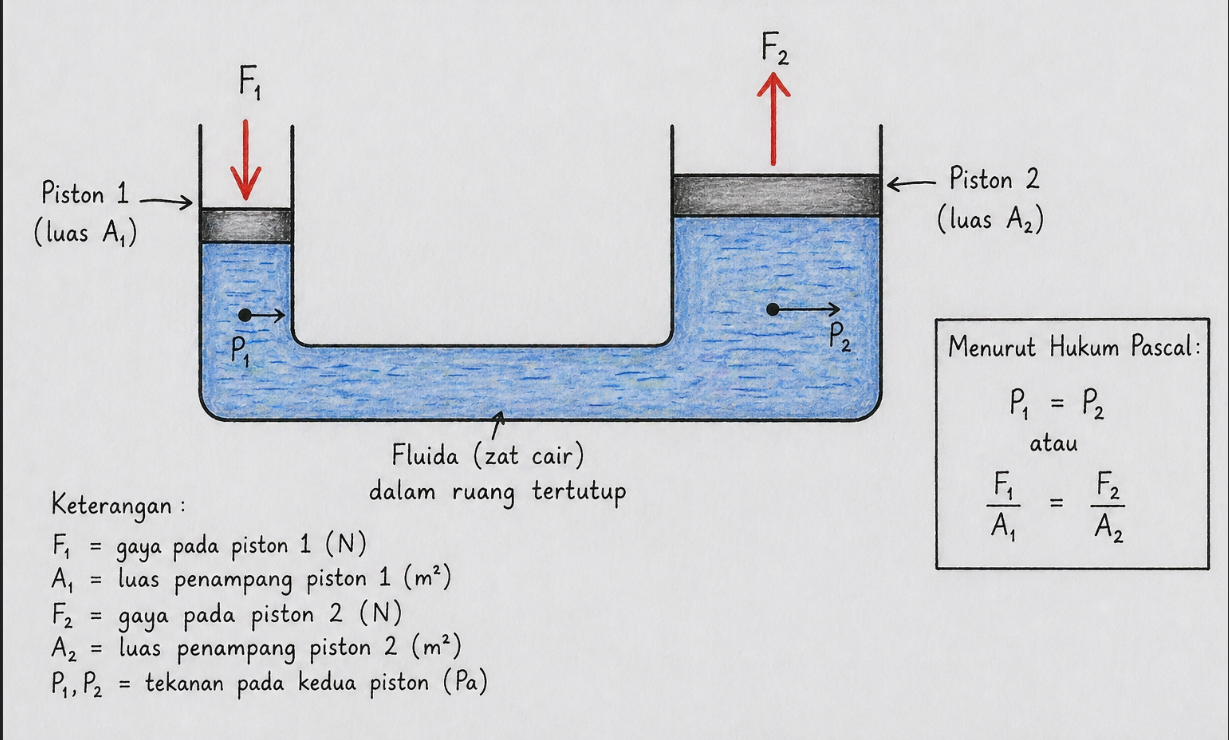 F₁
F₂
Piston 1
(luas A₁)
Piston 2
(luas A₂)
P₁
P₂
Fluida (zat cair)
dalam ruang tertutup
Menurut Hukum Pascal:
P₁ = P₂
atau
F₁/A₁ = F₂/A₂
Keterangan :
F₁ = gaya pada piston 1 (N)
A₁ = luas penampang piston 1 (m²)
F₂ = gaya pada piston 2 (N)
A₂ = luas penampang piston 2 (m²)
P₁, P₂ = tekanan pada kedua piston (Pa)